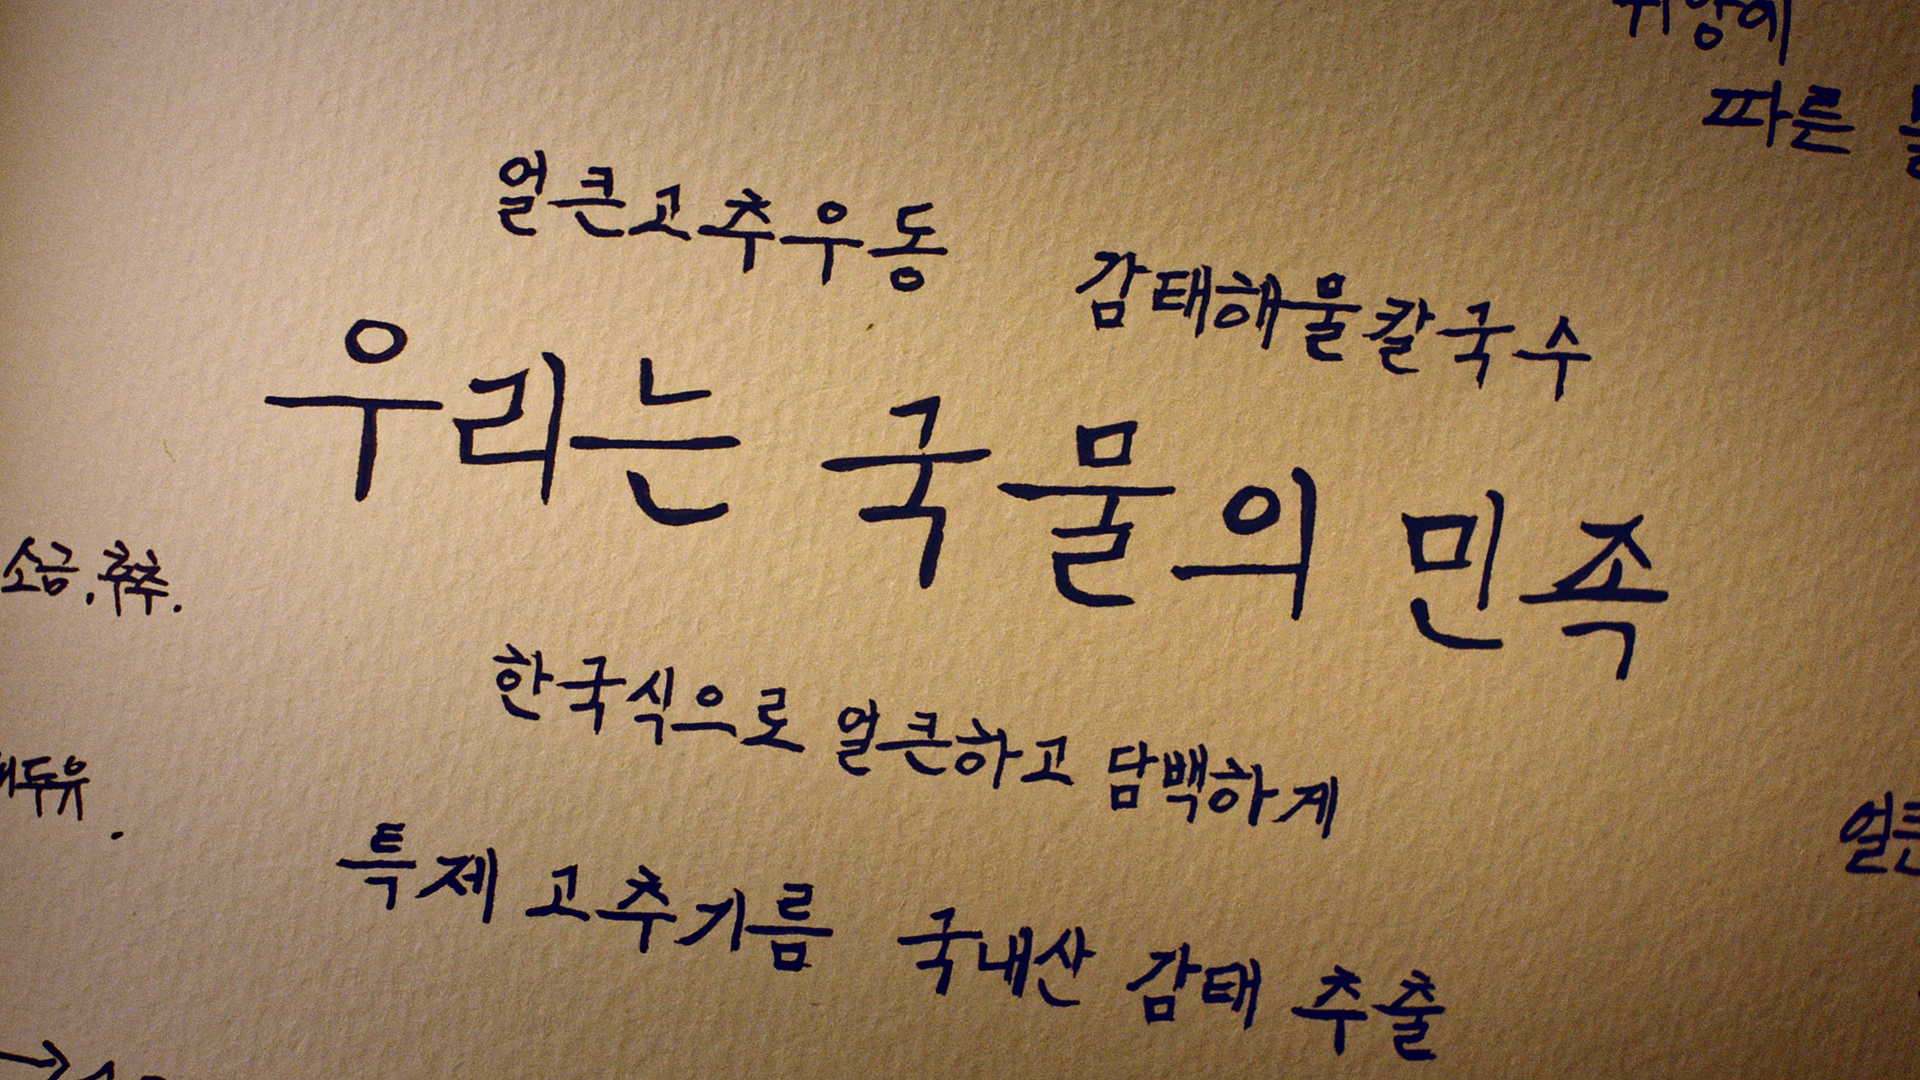 따른
얼큰고추우동
감태해물칼국수
우리는 국물의 민족
소금.후추.
한국식으로 얼큰하고 담백하게
특제 고추기름 국내산 감태 추출
얼큰